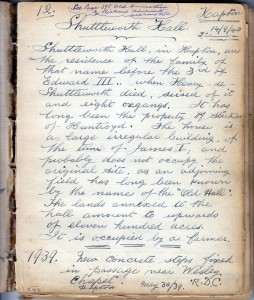 12. See Page 195 Old
Hapton
Shuttleworth Hall. 14/8/40
Shuttleworth Hall, in Hapton, was
the residence of the family of
that name before the 3rd of
Edward III, when Henry de
Shuttleworth died, seized of it
and eight oxgangs. It has
long been the property of
of Huntroyd. The house is
a large irregular building, of
the time of James I, and
probably does not occupy the
original site, as an adjoining
field has long been known
by the name of the "Old Hall".
The lands annexed to the
hall amount to upwards
of eleven hundred acres.
It is occupied by a farmer.
1939. New concrete steps fixed
in passage near Wesley
Chapel May 30/39. R.D.C.
Hapton